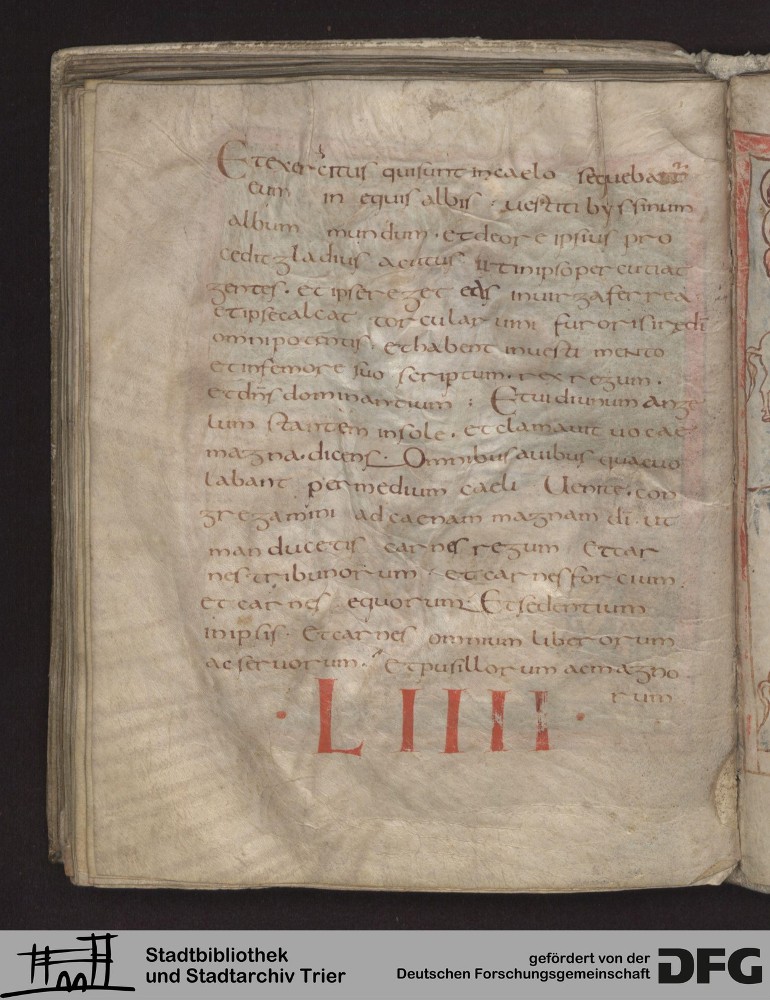 Et exercitus qui sunt in caelo sequebatur
eum in equis albis · vestiti byssinum
album mundum · et de ore ipsius pro
cedit gladius acutus ut in ipso percutiat
gentes · et ipse reget eos in virga ferrea
et ipse calcat torcular vini furoris irae dī
omnipotentis · et habent in vesti mento
et in femore suo scriptum · rex regum ·
et dn̄s dominantium : Et vidi unum ange
lum stantem in sole · et clamavit voce
magna · dicens · Omnibus avibus quae vo
labant per medium caeli Uenite · con
gregamini ad caenam magnam dī · ut
manducetis carnes regum et car
nes tribunorum · et carnes fortium ·
et carnes equorum · Et sedentium
in ipsis · Et carnes omnium liberorum
ac servorum · Et pusillorum ac magno
rum
· L I I I I ·
Stadtbibliothek
und Stadtarchiv Trier
gefördert von der
Deutschen Forschungsgemeinschaft
DFG